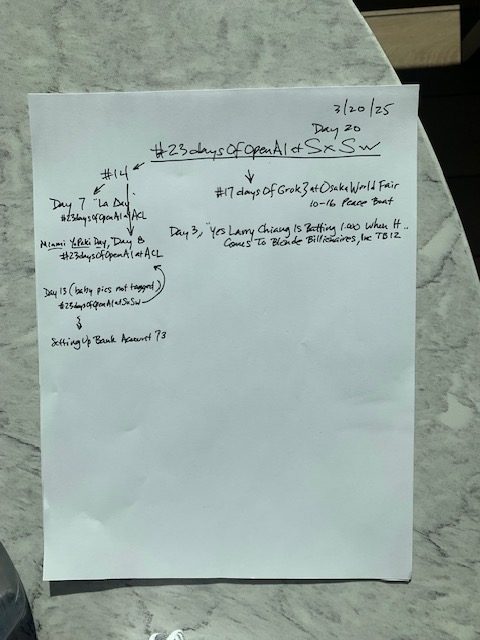 3/20/25
Day 20
#23daysOfOpenAI at SxSw
#14
Day 7 "La Day"
#23daysOfOpenAI at ACL
#17daysOfGrok3 at Osaka World Fair
10-16 Peace Boat
Day 3, "Yes Larry Chiang Is Batting 1.000 When It ..
Comes To Blonde Billionaires, Inc TB12
Miami Day, Day 8
#23daysOfOpenAI at ACL
Day 13 (baby pics not tagged)
#23daysOfOpenAI at SxSw
Setting Up Bank Account